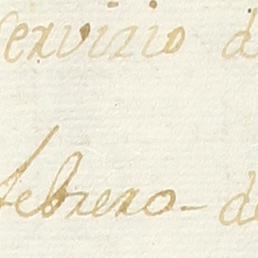 servizio d
febrero - de